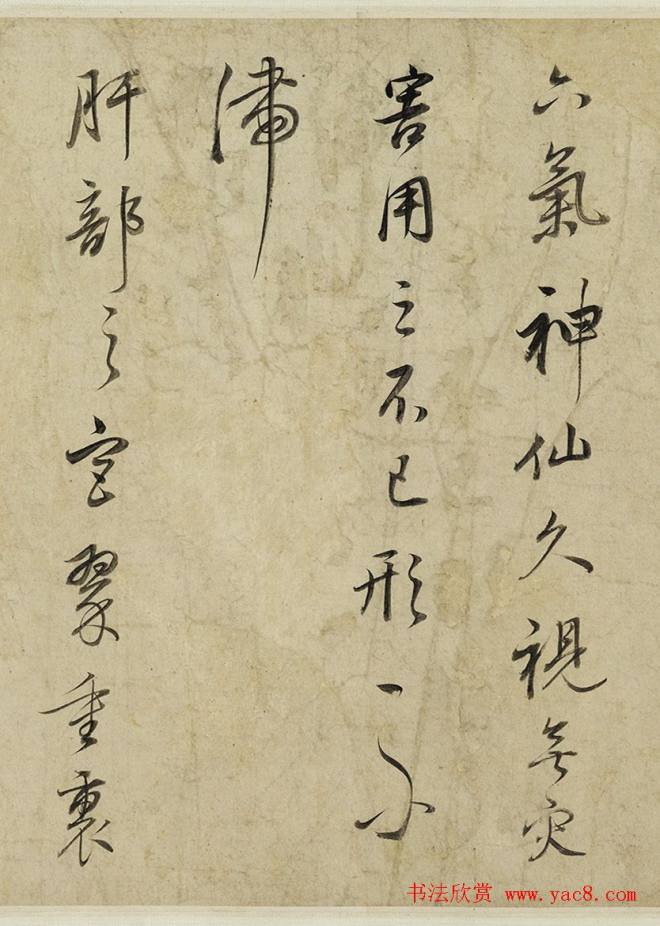 六氣神仙久視無災
害用之不已形不
滯
肝部之宮翠重裏
书法欣赏 www.yac8.com